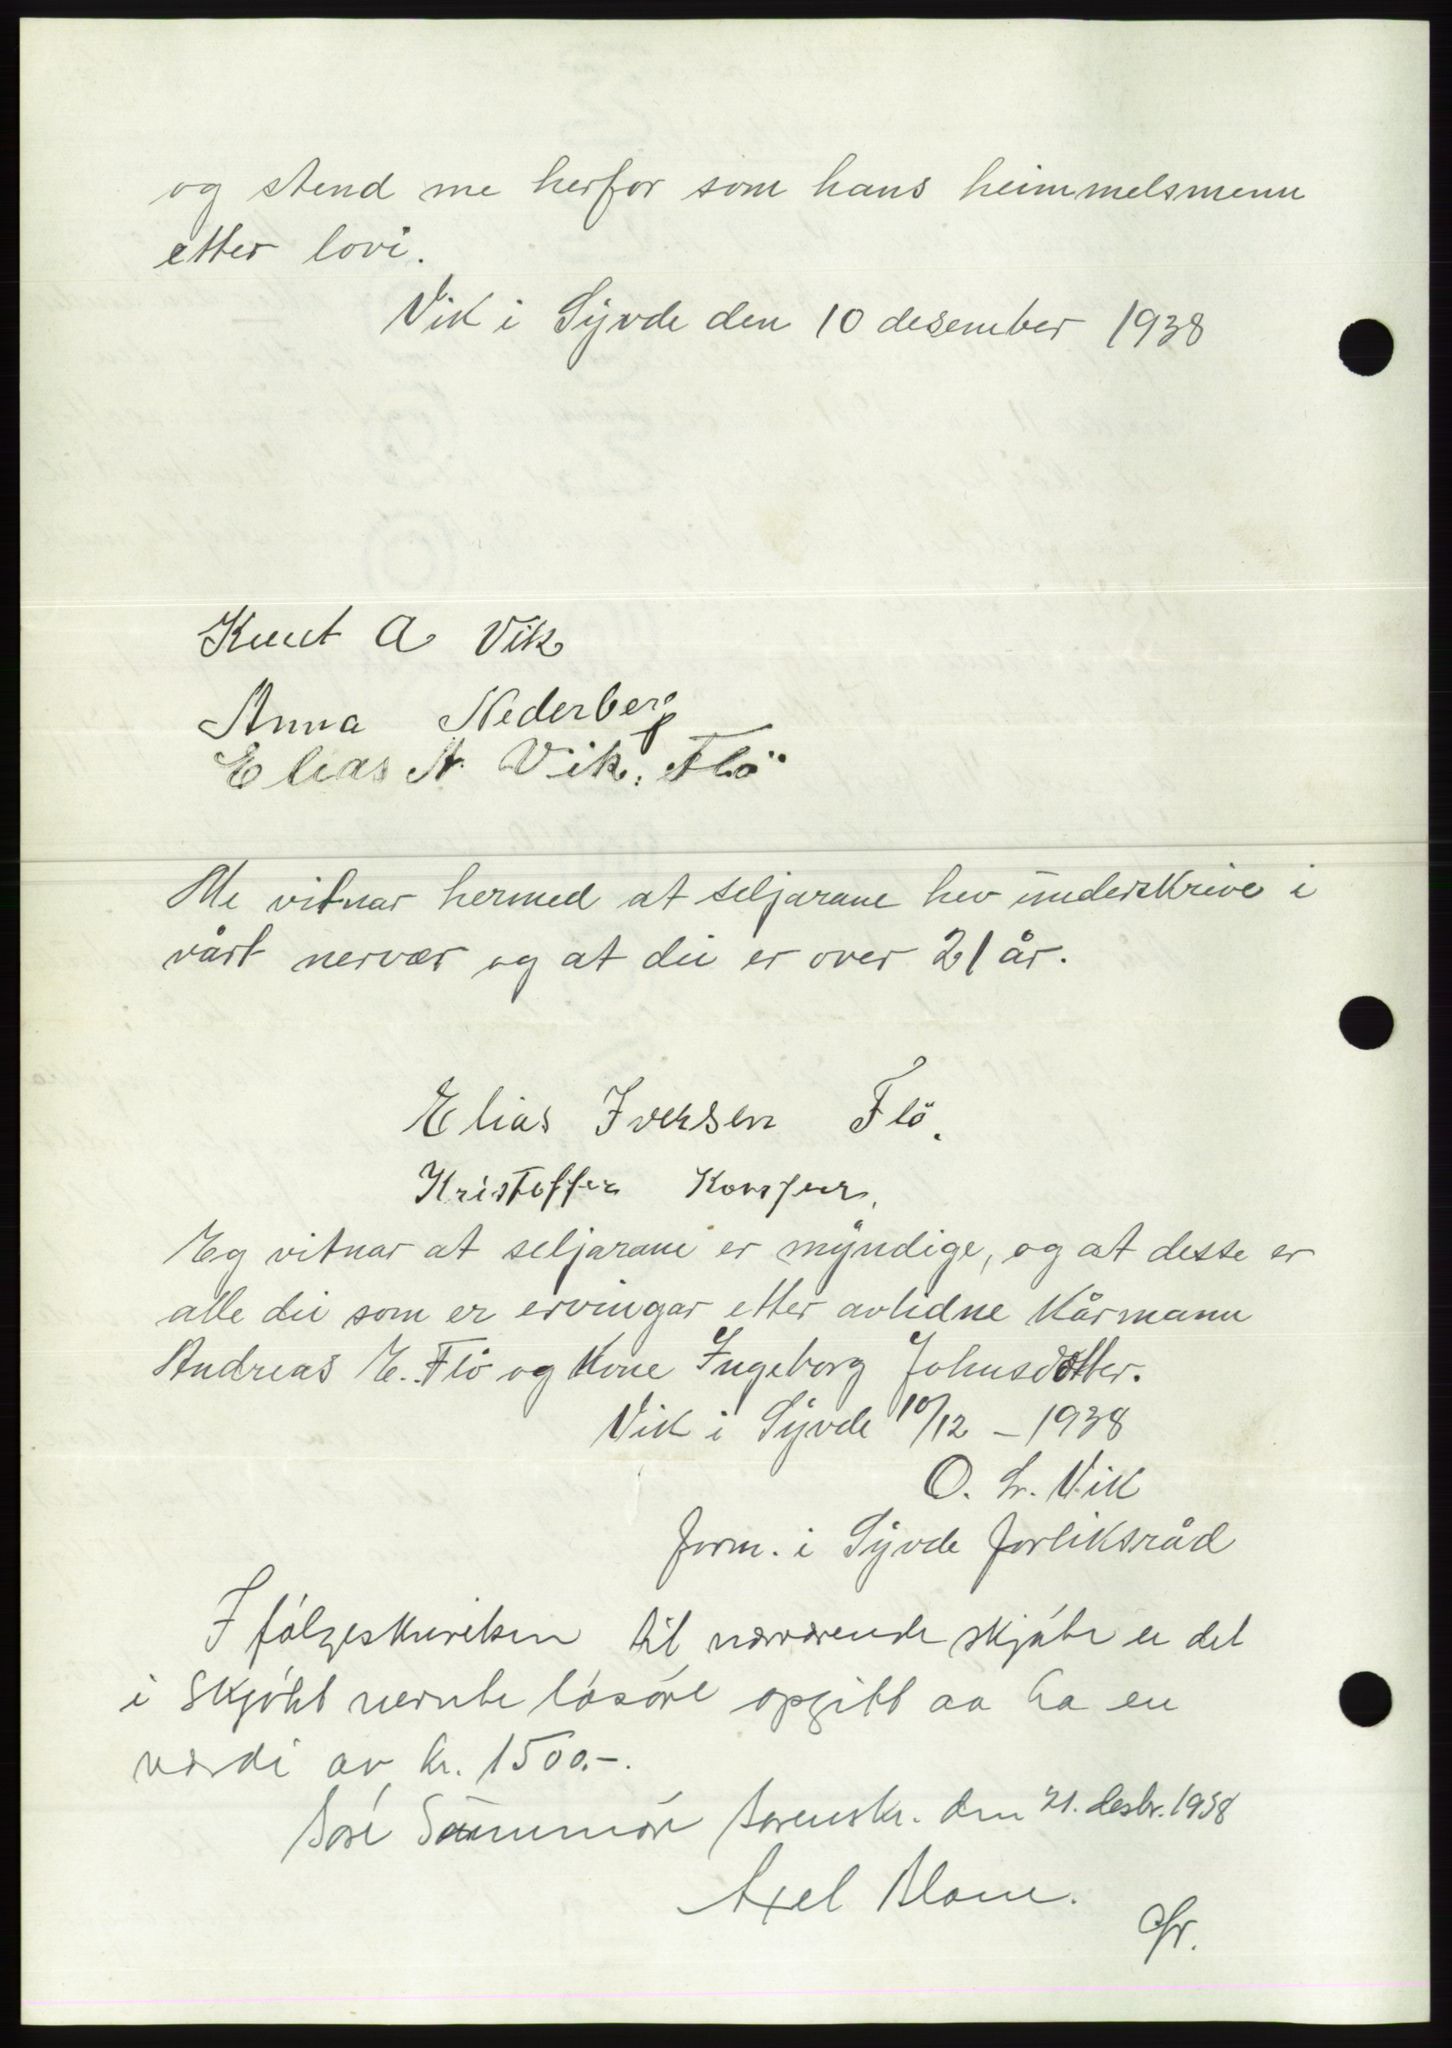 og stend me herfor som hans heimmelsmenn
etter lovi.
Vik i Syvde den 10 desember 1938
Knut A Vik
Anna Nederberg
Elias A. Vik. Flö
Me vitnar hermed at seljarane hev underskrive i
vårt nervær og at dei er over 21 år.
Elias Iversen Flö.
Kristoffer
Eg vitnar at seljarane er myndige, og at desse er
alle dei som er ervingar etter avlidne Kårmann
Andreas E. Flö og Kone Ingeborg Johnsdotter.
Vik i Syvde 10/12 – 1938
O. Vik
form. i Syvde forliksråd
I følgeskrivelsen til nærværende skjøte er det
i skjøtet nevnte løsøre opgitt aa ha en
værdi av kr. 1500.-.
Søre Sunnmøre sorenskr. den 21. desbr. 1938
Axel Blom.